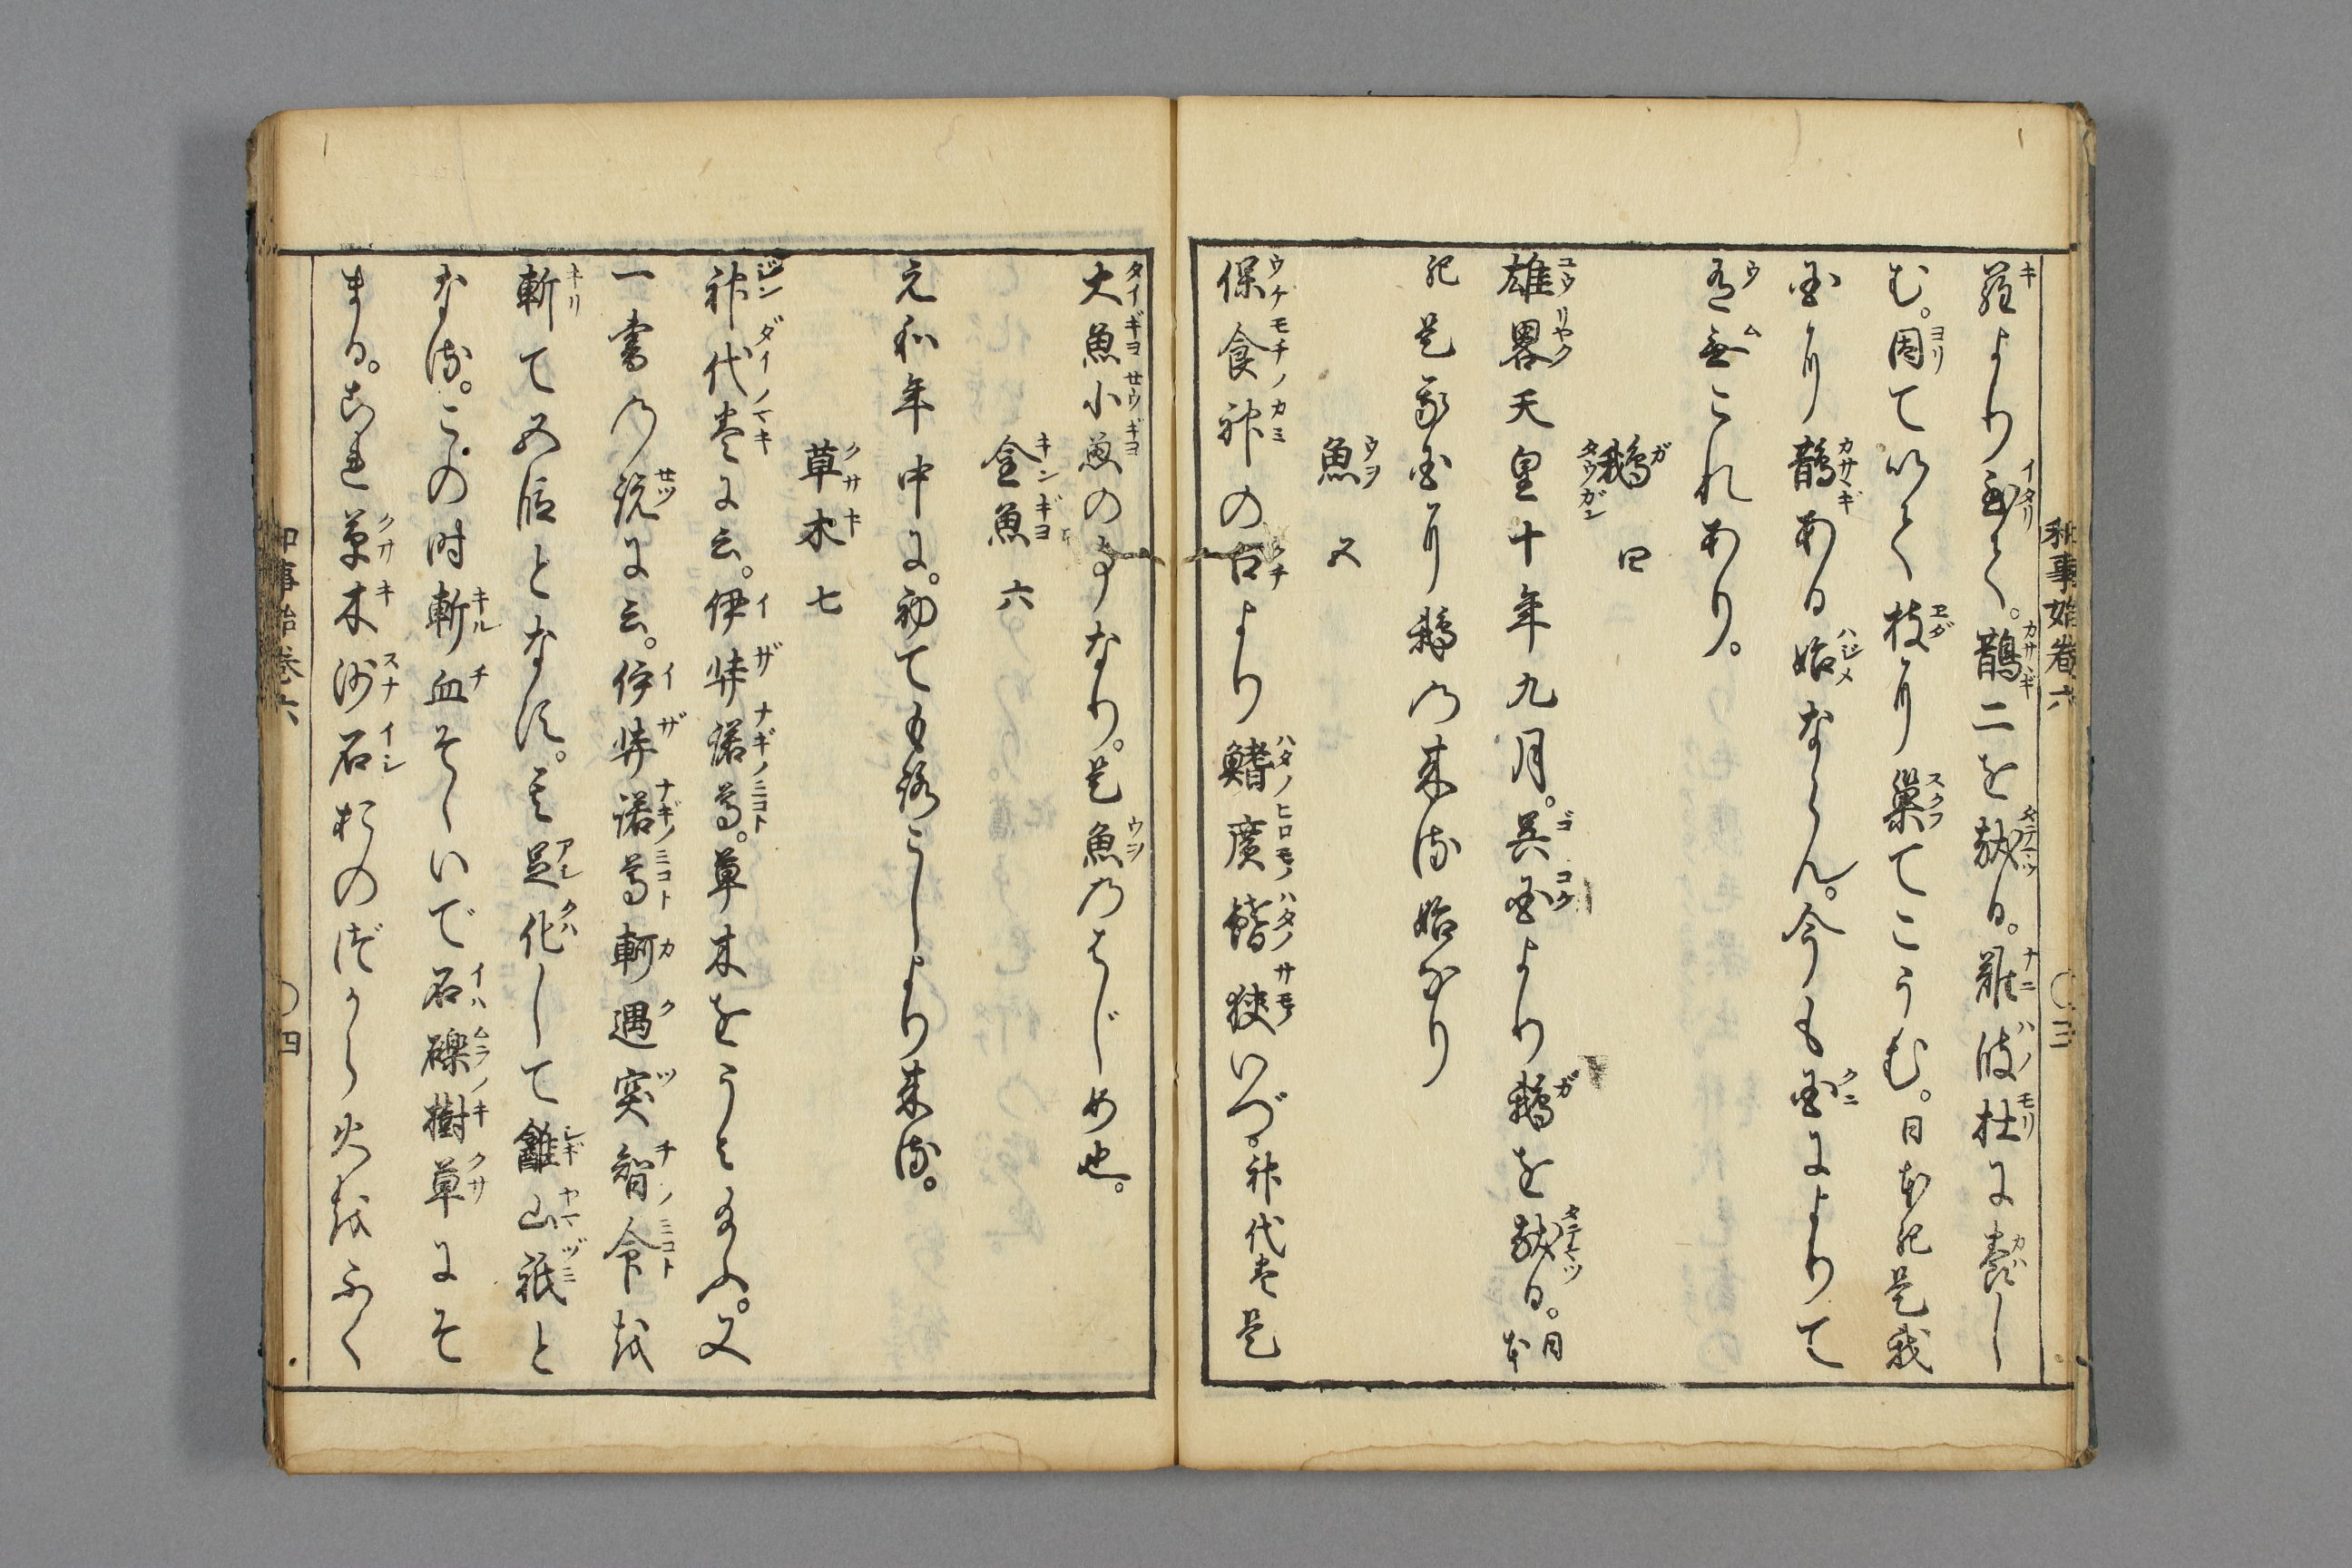 和事始巻六 〇三
羅より至て。鵲二を献る。難波杜に養し
む。因て以て枝に巣てこうむ。日本紀是我
国に鵲ある始ならん。今も国によりて
有無これあり。
鵝四
タウガン
雄畧天皇十年九月。呉国より鵝を献る。日本
紀是我国に鵝の来る始なり
魚五
保食神の口より鰭廣鰭狭いづ。神代巻是
大魚小魚の事なり。是魚のはじめ也。
金魚六
元和年中に。初てもろこしより来る。
草木七
神代巻に云。伊弉諾尊。草木をうみ給ふ。又
一書の説に云。伊弉諾尊軻遇突智命を
斬て五段となす。其足化して䨄山祇と
なる。この時斬血そゝいで石礫樹草にそ
まる。これ草木沙石おのづから火をふく
和事始巻六 〇四